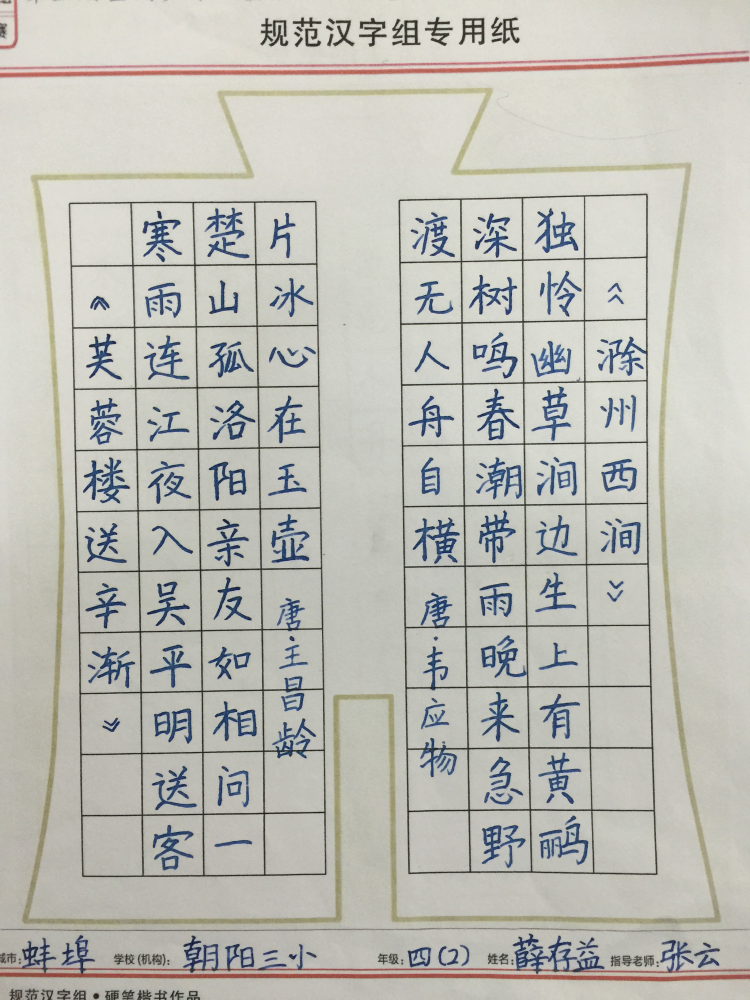 赛
规范汉字组专用纸
《滁州西涧》
独怜幽草涧边生上有黄鹂
深树鸣春潮带雨晚来急野
渡无人舟自横 唐·韦应物
《芙蓉楼送辛渐》
寒雨连江夜入吴平明送客
楚山孤洛阳亲友如相问一
片冰心在玉壶 唐·王昌龄
城市：蚌埠 学校(机构)：朝阳三小 年级：四(2) 姓名：薛存益 指导老师：张云
规范汉字组·硬笔楷书作品